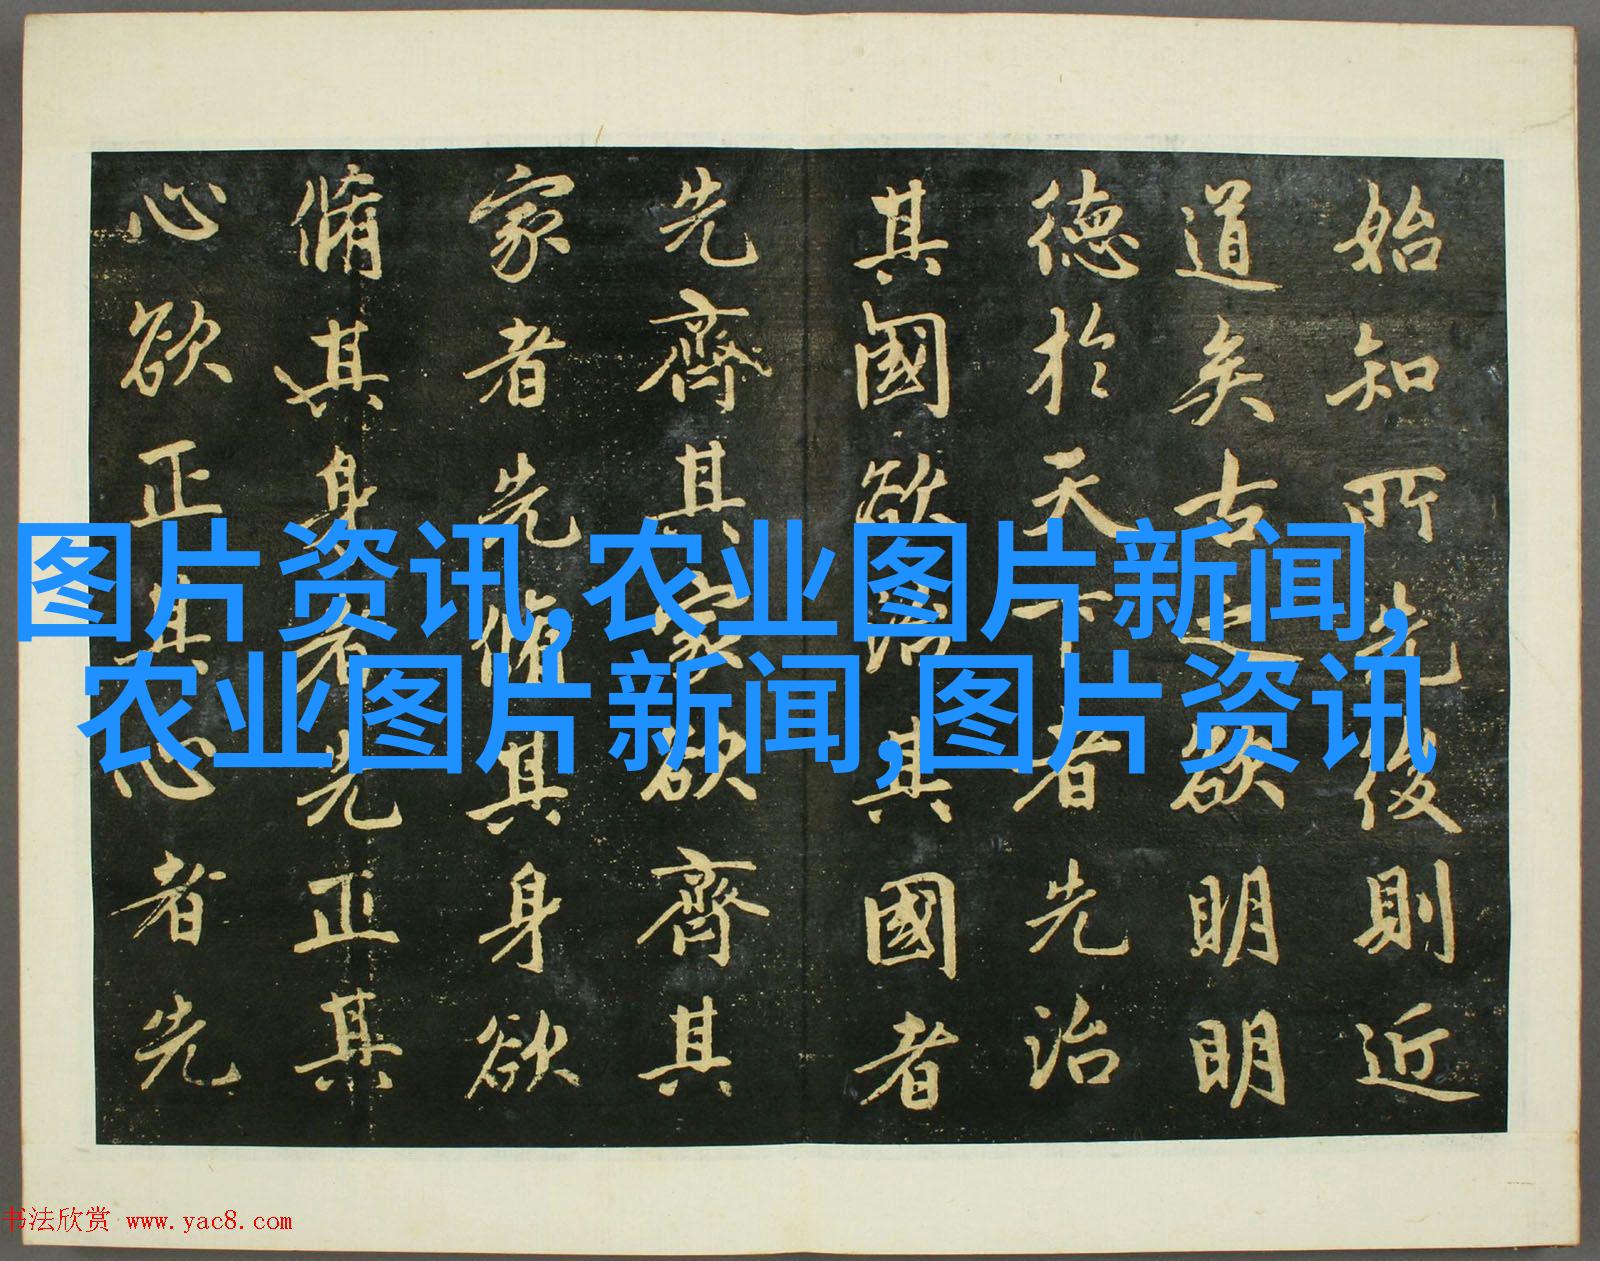 始知所先後則近
道矣古之欲明明
德於天下者先治
其國欲治其國者
先齊其家欲齊其
家者先脩其身欲
脩其身者先正其
心欲正其心者先
图片资讯,农业图片新闻,
农业图片新闻,图片资讯
书法欣赏 www.yac8.com